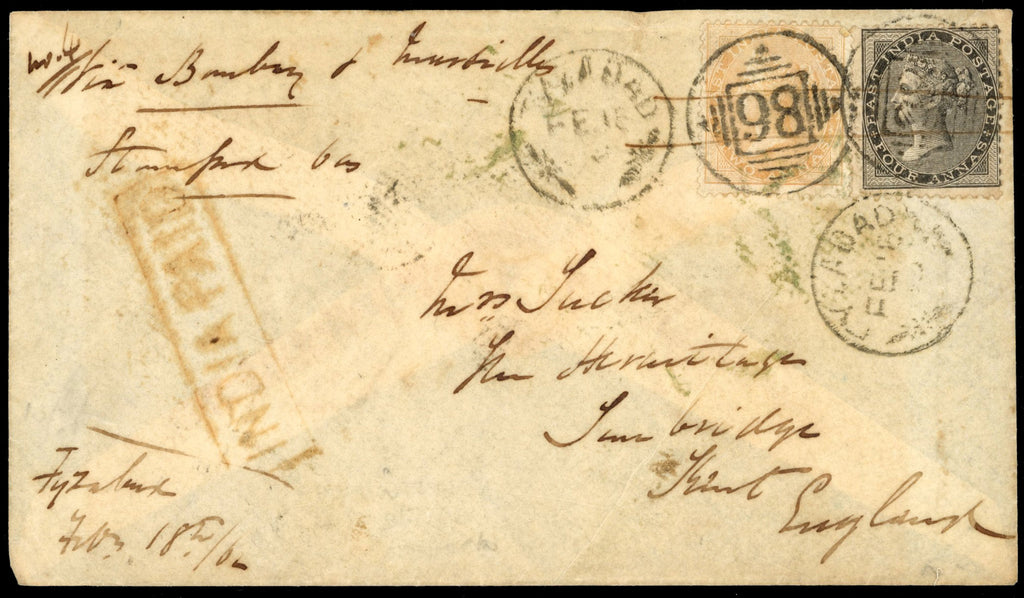 No. 4
Via Bombay & Marseilles
Stamped 6as
FYZABAD
FE 18
98
EAST INDIA POSTAGE
FOUR ANNAS
FYZABAD
FE 18
INDIA PAID
Mrs Tucker
The Hermitage
Tunbridge
Kent
England
Fyzabad
Feby 18th/62